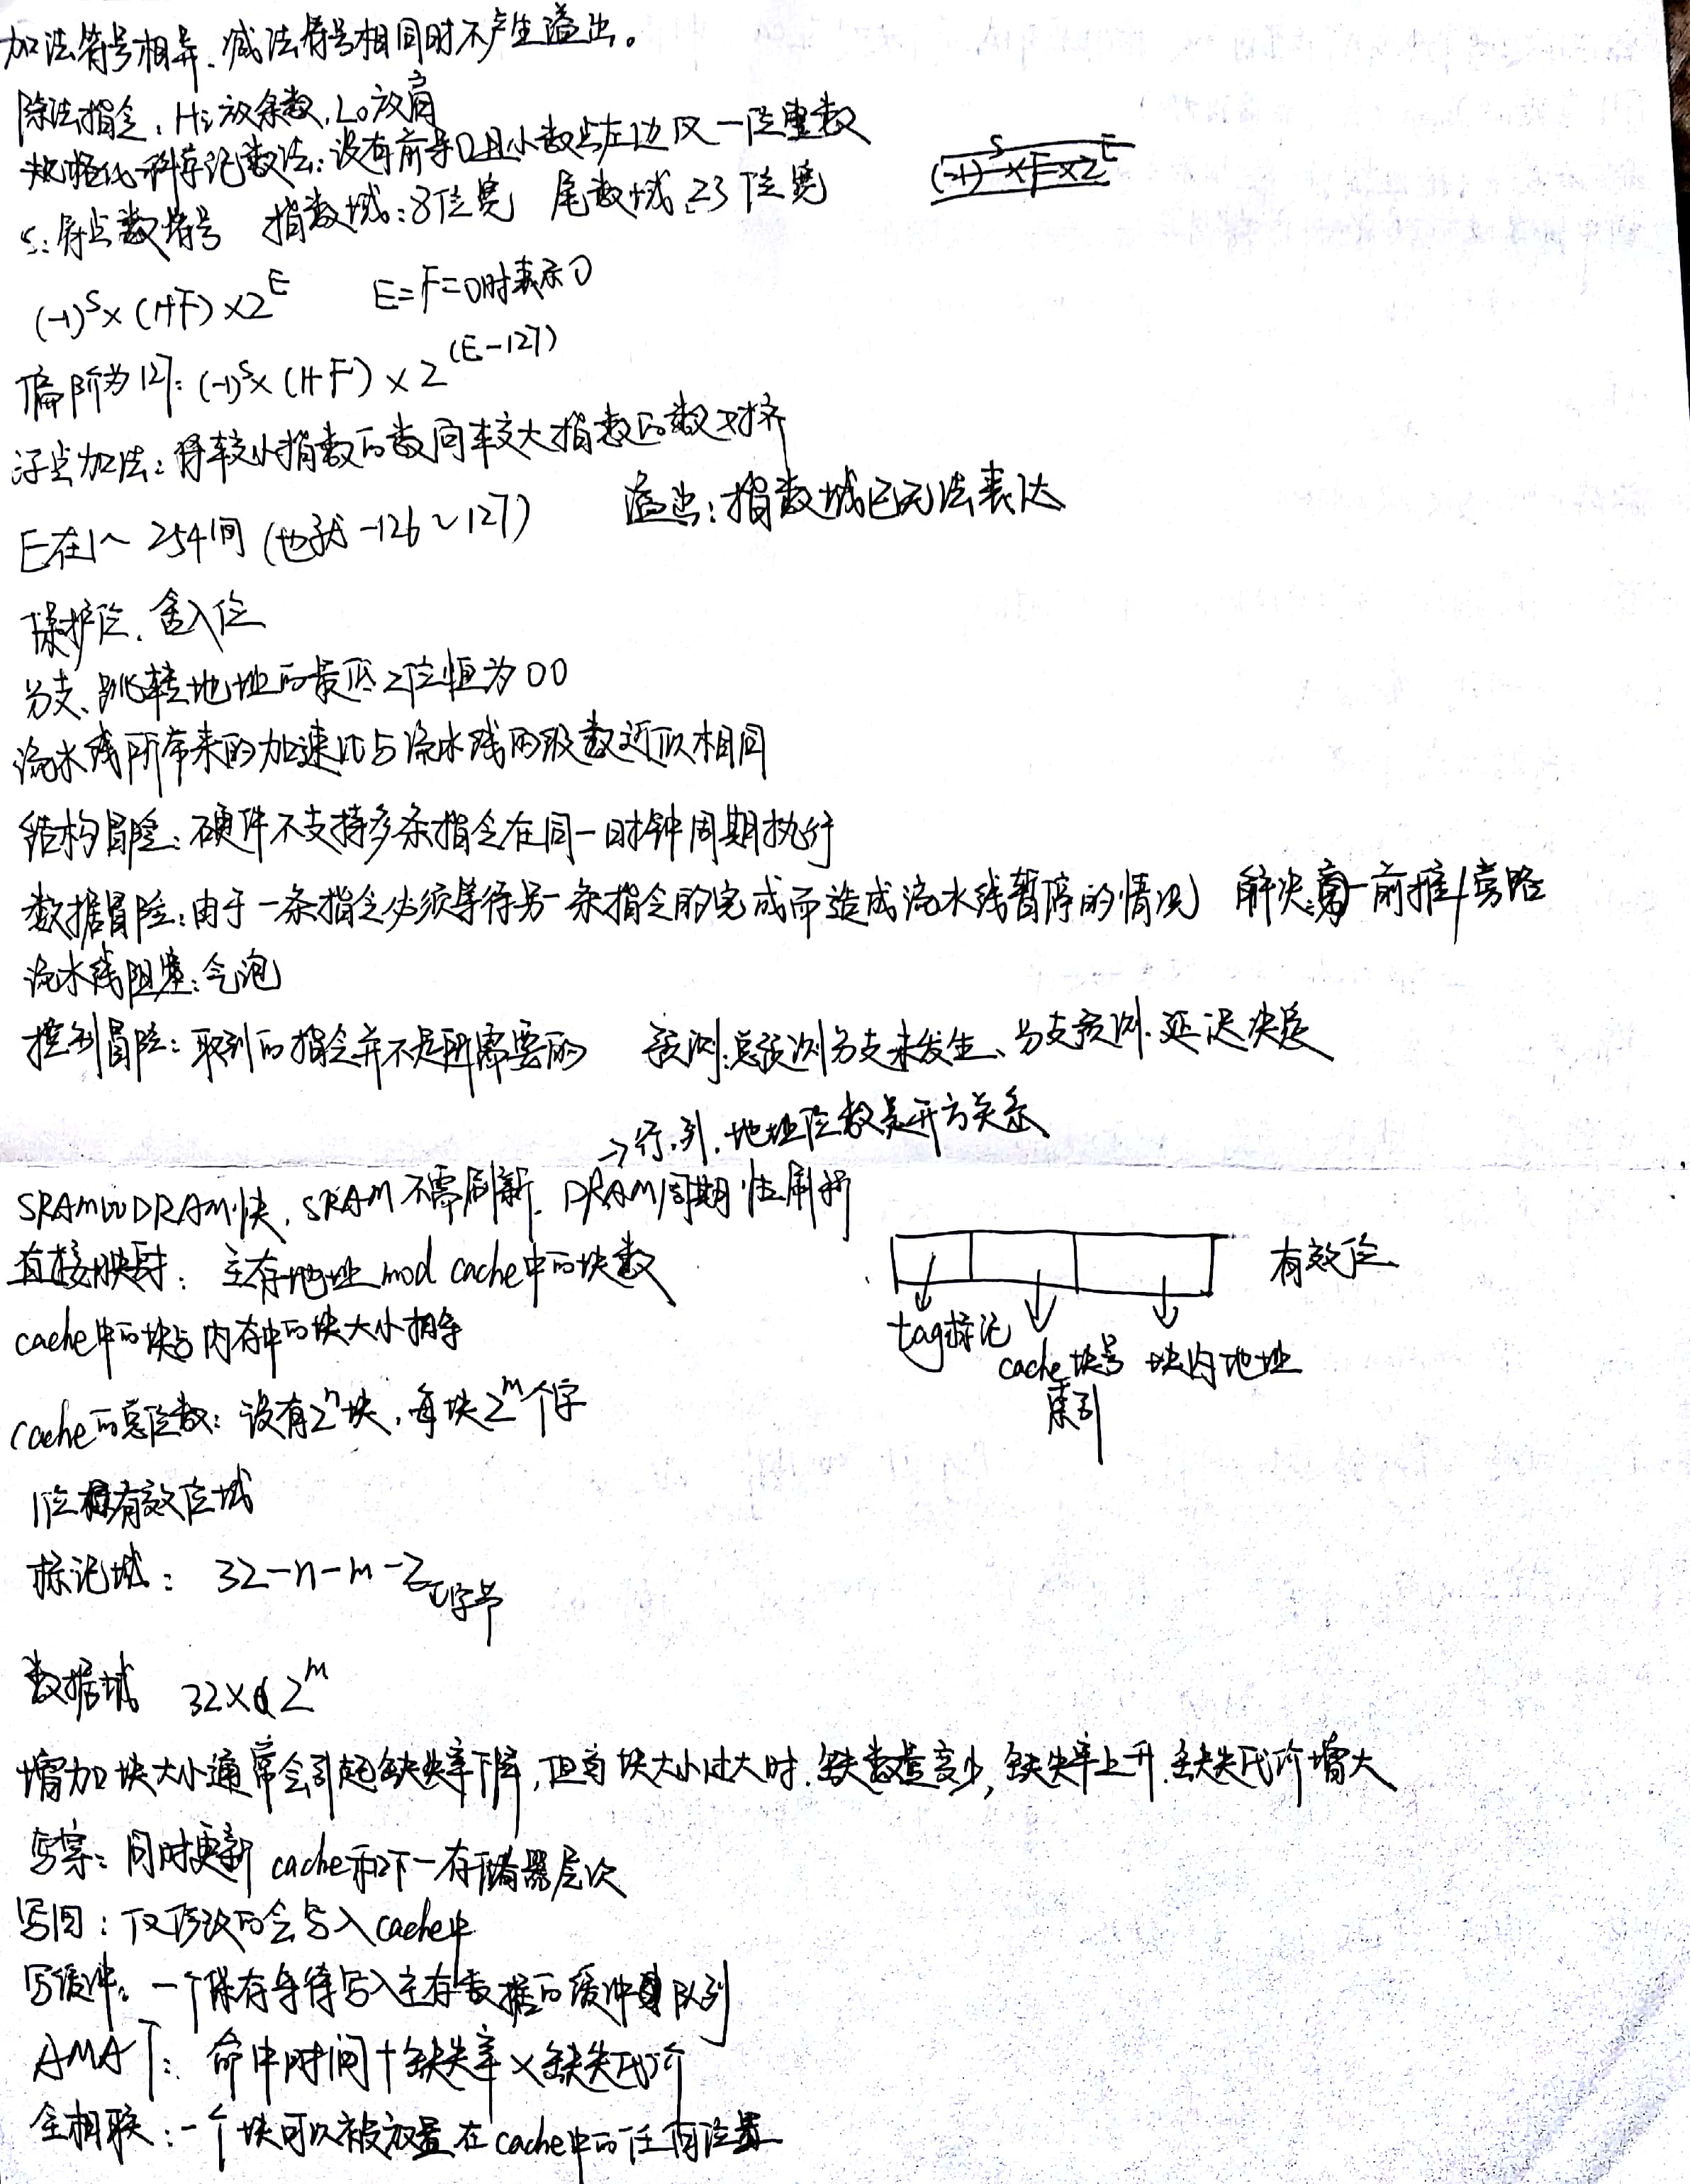 加法符号相异、减法符号相同时不产生溢出。
除法指令，Hi放余数，Lo放商
规格化科学记数法：没有前导0且小数点左边仅一位整数
(-1)^S×F×2^E
S：浮点数符号 指数域：8位宽 尾数域：23位宽
(-1)^S×(1+F)×2^E E=F=0时表示0
偏阶为127：(-1)^S×(1+F)×2^(E-127)
浮点加法：将较小指数的数向较大指数的数对齐
E在1～254间（也就-126～127） 溢出：指数域已无法表达
保护位、舍入位
分支、跳转地址的最低2位恒为00
流水线所带来的加速比与流水线的级数近似相同
结构冒险：硬件不支持多条指令在同一时钟周期执行
数据冒险：由于一条指令必须等待另一条指令的完成而造成流水线暂停的情况 解决：前推/旁路
流水线阻塞：气泡
控制冒险：取到的指令并不是所需要的 预测：总预测分支未发生、分支预测、延迟决定
→行、列，地址位数是开方关系
SRAM比DRAM快，SRAM不需刷新，DRAM周期性刷新
直接映射：主存地址 mod cache中的块数
有效位
tag标记
cache块号 块内地址
索引
cache中的块与内存中的块大小相等
cache的总位数：设有2^n块，每块2^m个字
1位有效位域
标记域：32-n-m-2 字节
数据域 32×2^m
增加块大小通常会引起缺失率下降，但当块大小过大时，块数量变少，缺失率上升，缺失代价增大
写穿：同时更新cache和下一存储器层次
写回：仅修改的会写入cache中
写缓冲：一个保存等待写入主存数据的缓冲队列
AMAT：命中时间+缺失率×缺失代价
全相联：一个块可以被放置在cache中的任何位置